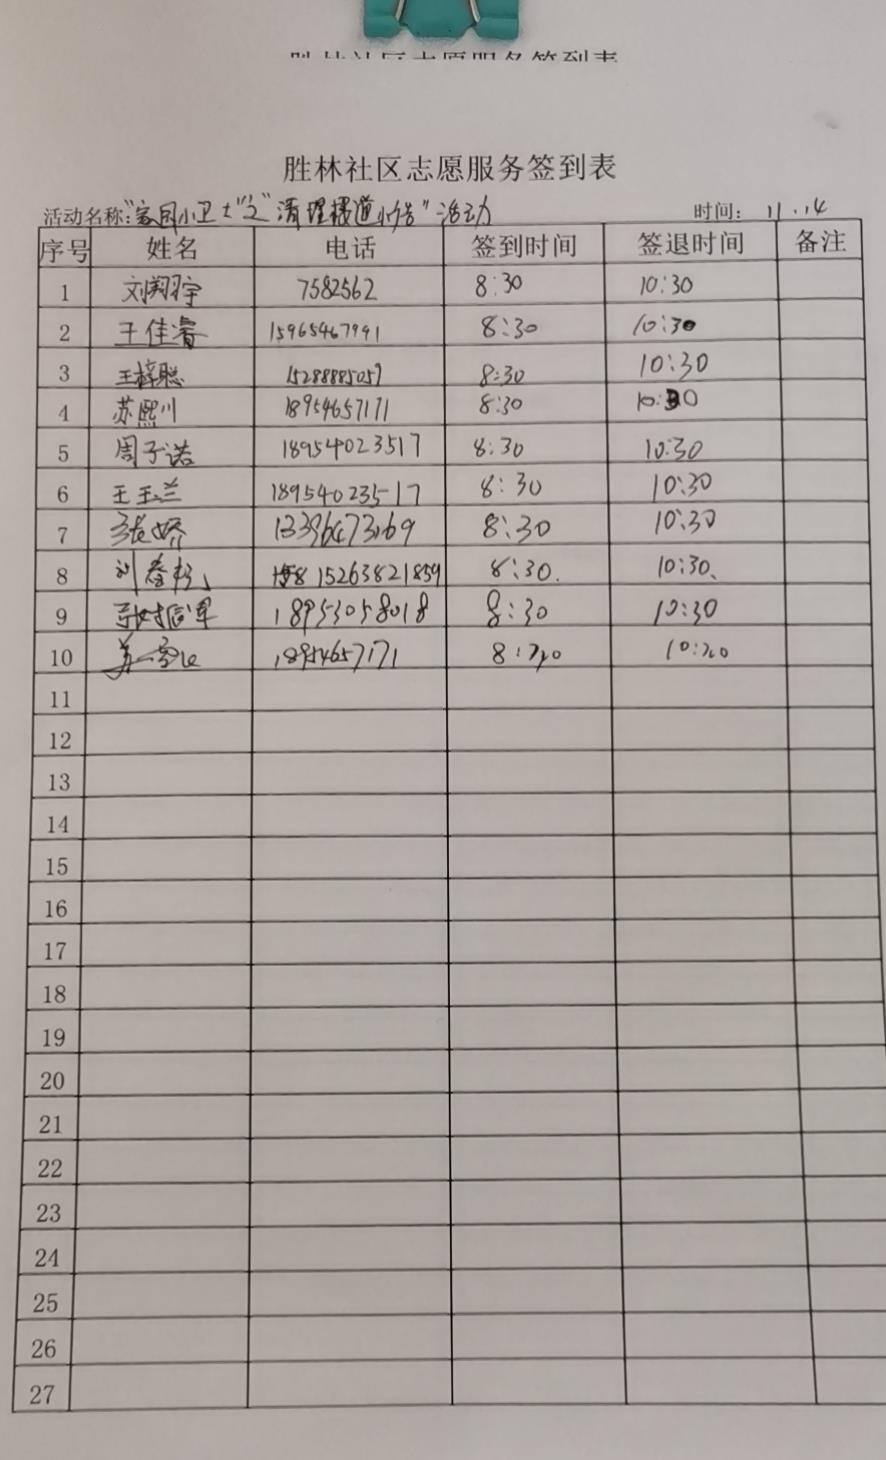 胜林社区志愿服务签到表
活动名称:"家园小卫士"之"清理楼道小广告"活动 时间: 11.14
序号 姓名 电话 签到时间 签退时间 备注
1 刘翔宇 7582562 8:30 10:30
2 王佳睿 15965467991 8:30 10:30
3 王梓聪 15288885057 8:30 10:30
4 苏熙川 18954657171 8:30 10:30
5 周子诺 18954023517 8:30 10:30
6 王玉兰 18954023517 8:30 10:30
7 张娇 8:30 10:30
8 刘春 15263821859 8:30. 10:30、
9 18953058018 8:30 10:30
10 18954657171 8:30 10:30
11
12
13
14
15
16
17
18
19
20
21
22
23
24
25
26
27